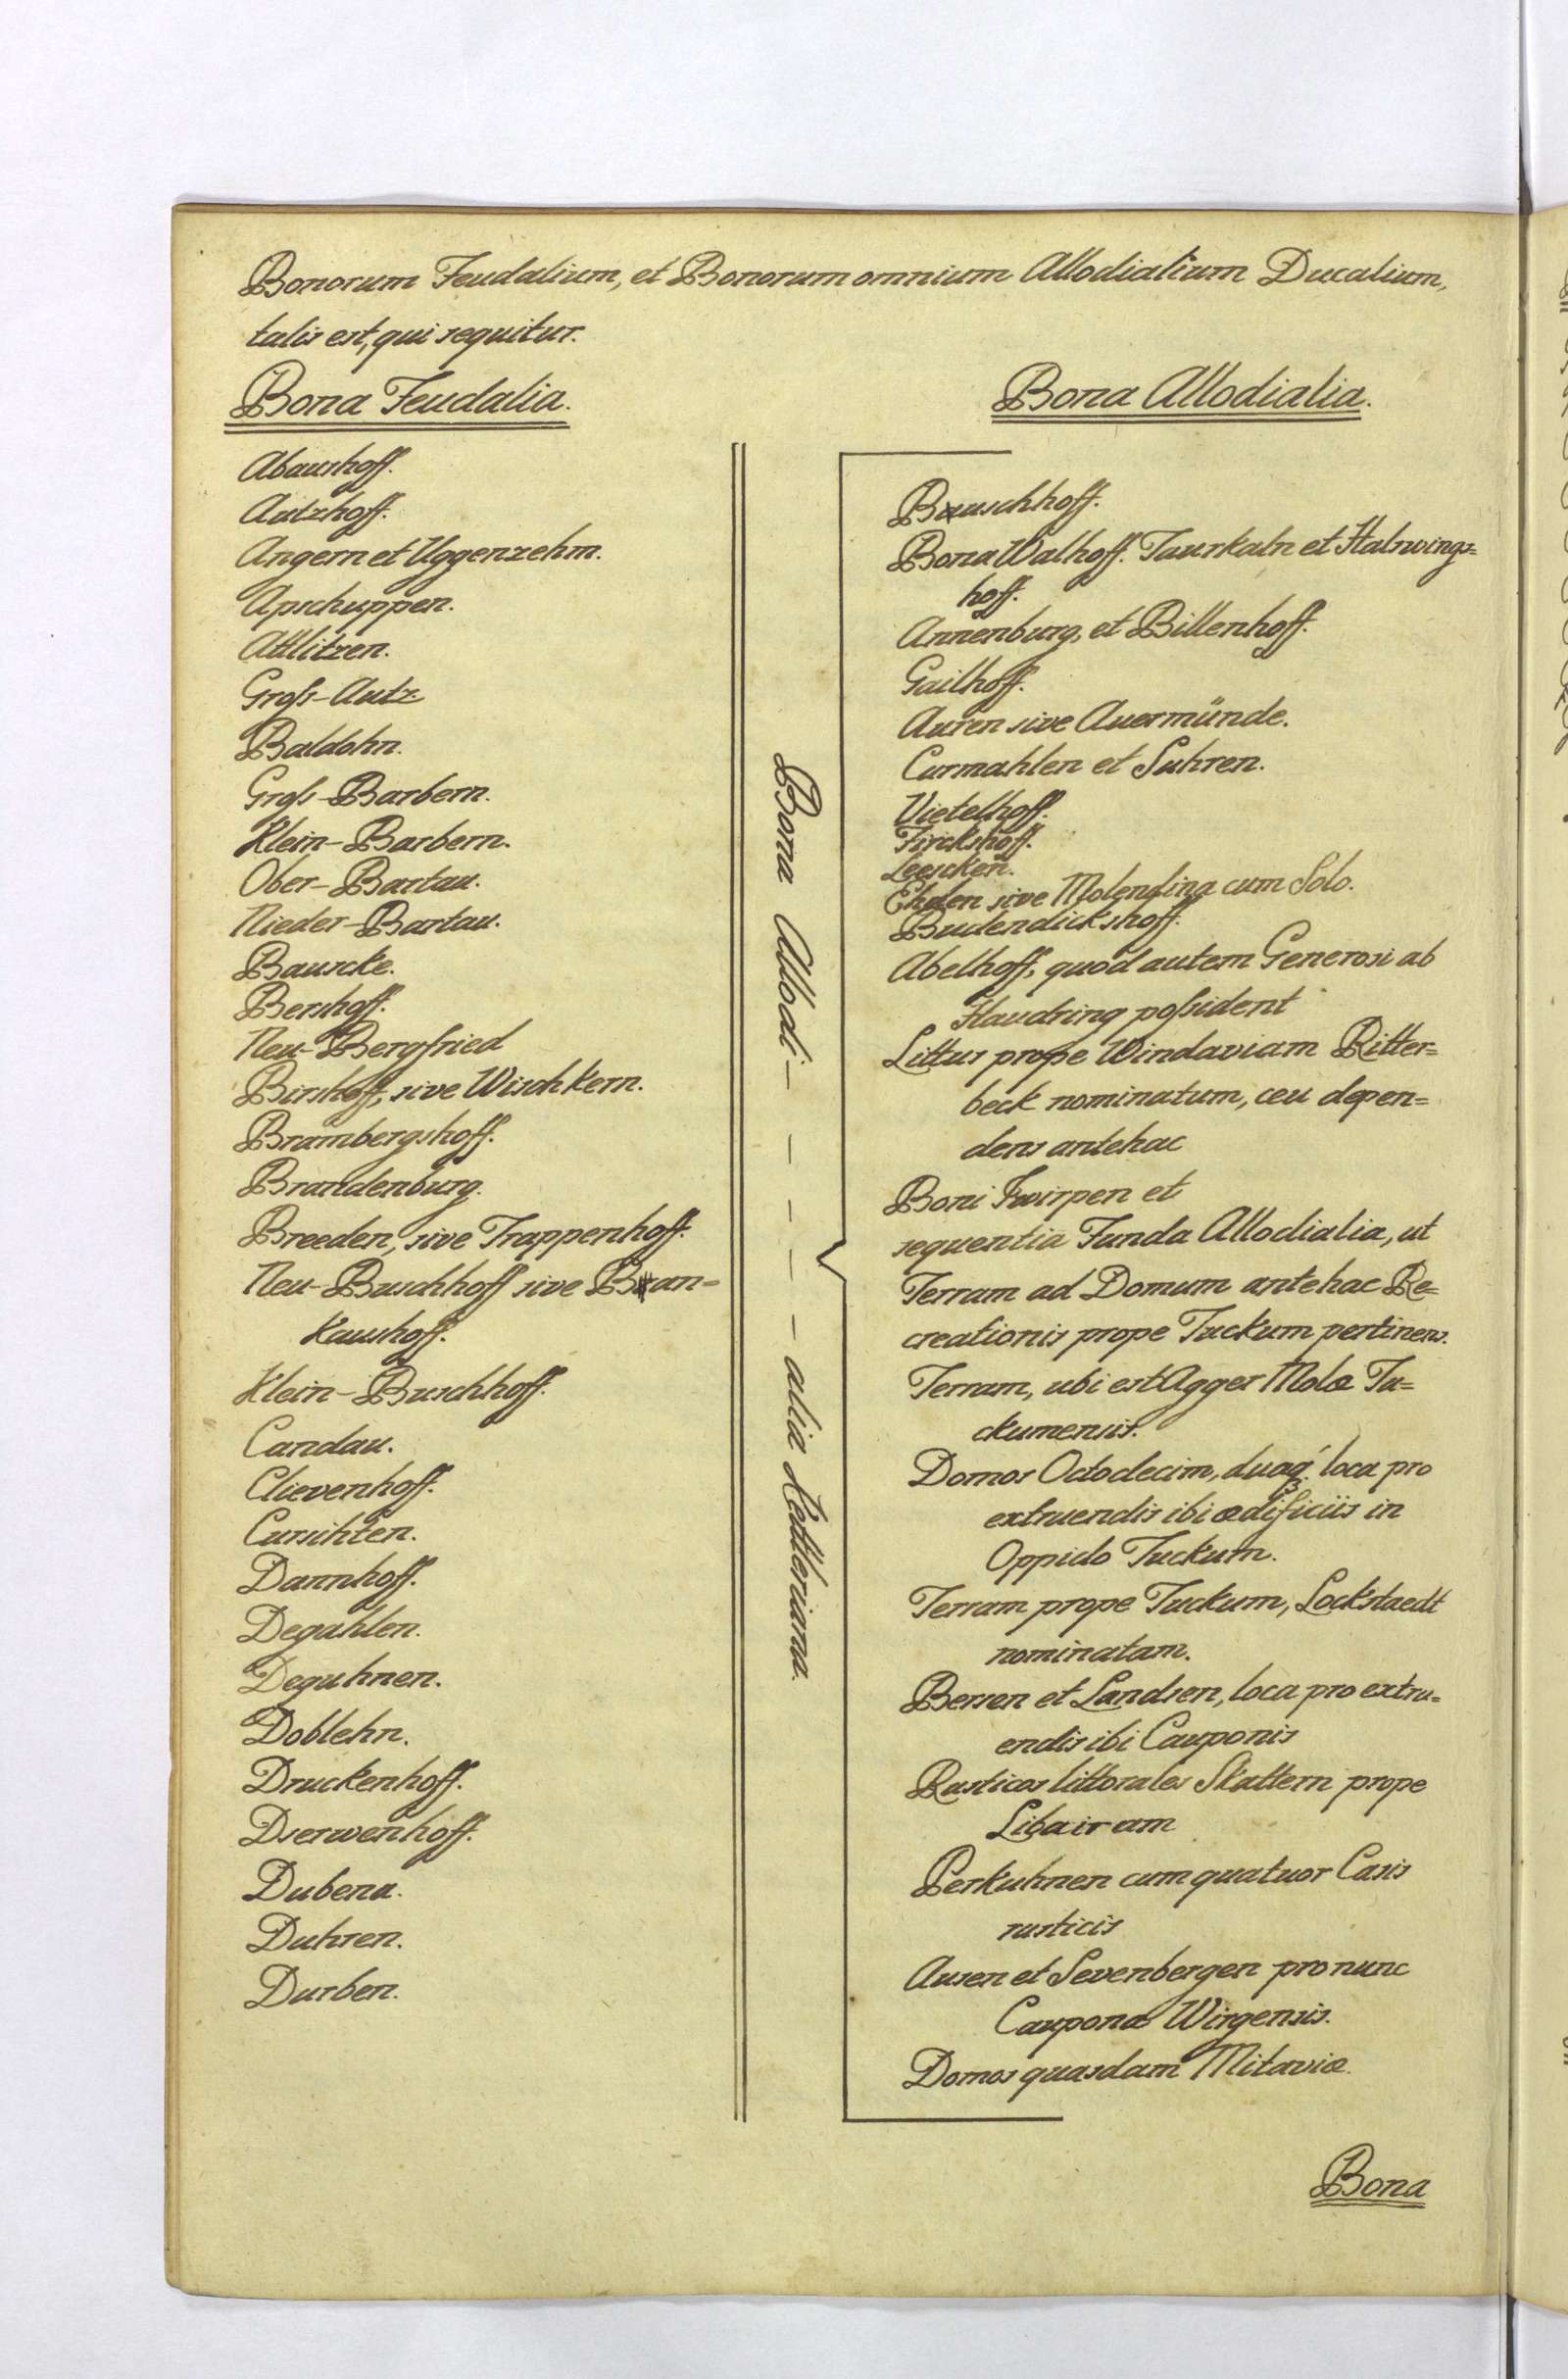 Bonorum Feudalium, et Bonorum omnium Allodialium Ducalium,
talis est, qui sequitur.
Bona Feudalia.
Abaushoff.
Autzhoff.
Angern et Uggenzehm.
Apschuppen.
Attlitzen.
Groß-Autz.
Baldohn.
Groß-Barbern.
Klein-Barbern.
Ober-Bartau.
Nieder-Bartau.
Bauscke.
Bershoff.
Neu-Bergfried
Birshoff, sive Wischkern.
Brambergshoff.
Brandenburg.
Breeden, sive Trappenhoff.
Neu-Buschhoff sive Bran=
kaushoff.
Klein-Buschhoff.
Candau.
Clievenhoff.
Cursichten.
Dannhoff.
Degahlen.
Deguhnen.
Doblehn.
Druckenhoff.
Dserwenhoff.
Dubena.
Duhren.
Durben.
Bona Allodi- - - - - alia Kettleriana.
Bona Allodialia.
Buschhoff.
Bona Walhoff. Taurkaln et Stalswings=
hoff.
Annenburg, et Billenhoff.
Gailhoff.
Auren sive Auermünde.
Curmahlen et Suhren.
Vietelhoff.
Firckshoff.
Leescken.
Ekden sive Molendina cum Solo.
Budendickshoff.
Abelhoff, quod autem Generosi ab
Haudring poßident
Littus prope Windaviam Ritter=
beck nominatum, ceu depen=
dens antehac
Boni Zwirpen et
sequentia Funda Allodialia, ut
Terram ad Domum antehac Re=
creationis prope Tuckum pertinens.
Terram, ubi est Agger Molæ Tu=
ckumensis.
Domos Octodecim, duaq́ loca pro
extruendis ibi ædificiis in
Oppido Tuckum.
Terram prope Tuckum, Lockstaedt
nominatam.
Bersen et Landsen, loca pro extru=
endis ibi Cauponis
Rusticos littorales Skattern prope
Libaviam
Perkuhnen cum quatuor Casis
rusticis
Ausen et Sevenbergen pro nunc
Cauponæ Wirgensis.
Domos quasdam Mitaviæ.
Bona